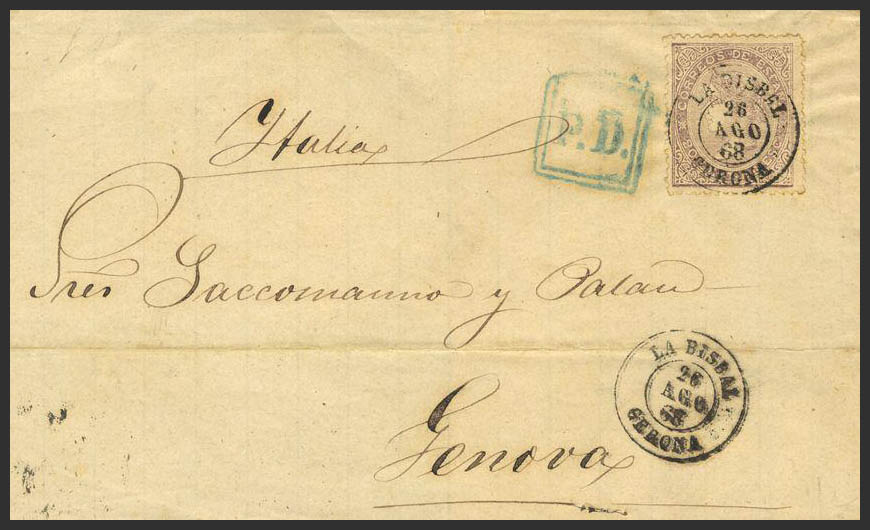 CORREOS DE
LA BISBAL
26
AGO
68
GERONA
P.D.
Italia
Sres Saccomanno y Palau
LA BISBAL
26
AGO
68
GERONA
Genova